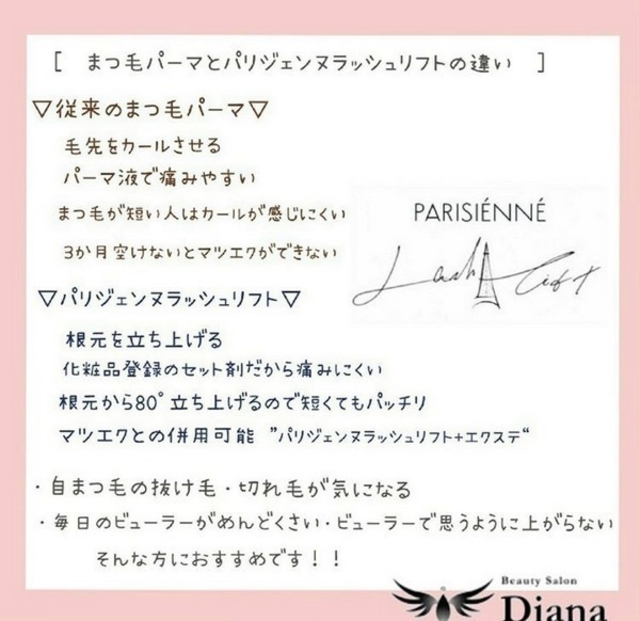 [ まつ毛パーマとパリジェンヌラッシュリフトの違い ]
▽従来のまつ毛パーマ▽
毛先をカールさせる
パーマ液で痛みやすい
まつ毛が短い人はカールが感じにくい
3か月空けないとマツエクができない
PARISIÉNNÉ
Lash Lift
▽パリジェンヌラッシュリフト▽
根元を立ち上げる
化粧品登録のセット剤だから痛みにくい
根元から80°立ち上げるので短くてもパッチリ
マツエクとの併用可能 ”パリジェンヌラッシュリフト+エクステ“
・自まつ毛の抜け毛・切れ毛が気になる
・毎日のビューラーがめんどくさい・ビューラーで思うように上がらない
そんな方におすすめです！！
Beauty Salon
Diana